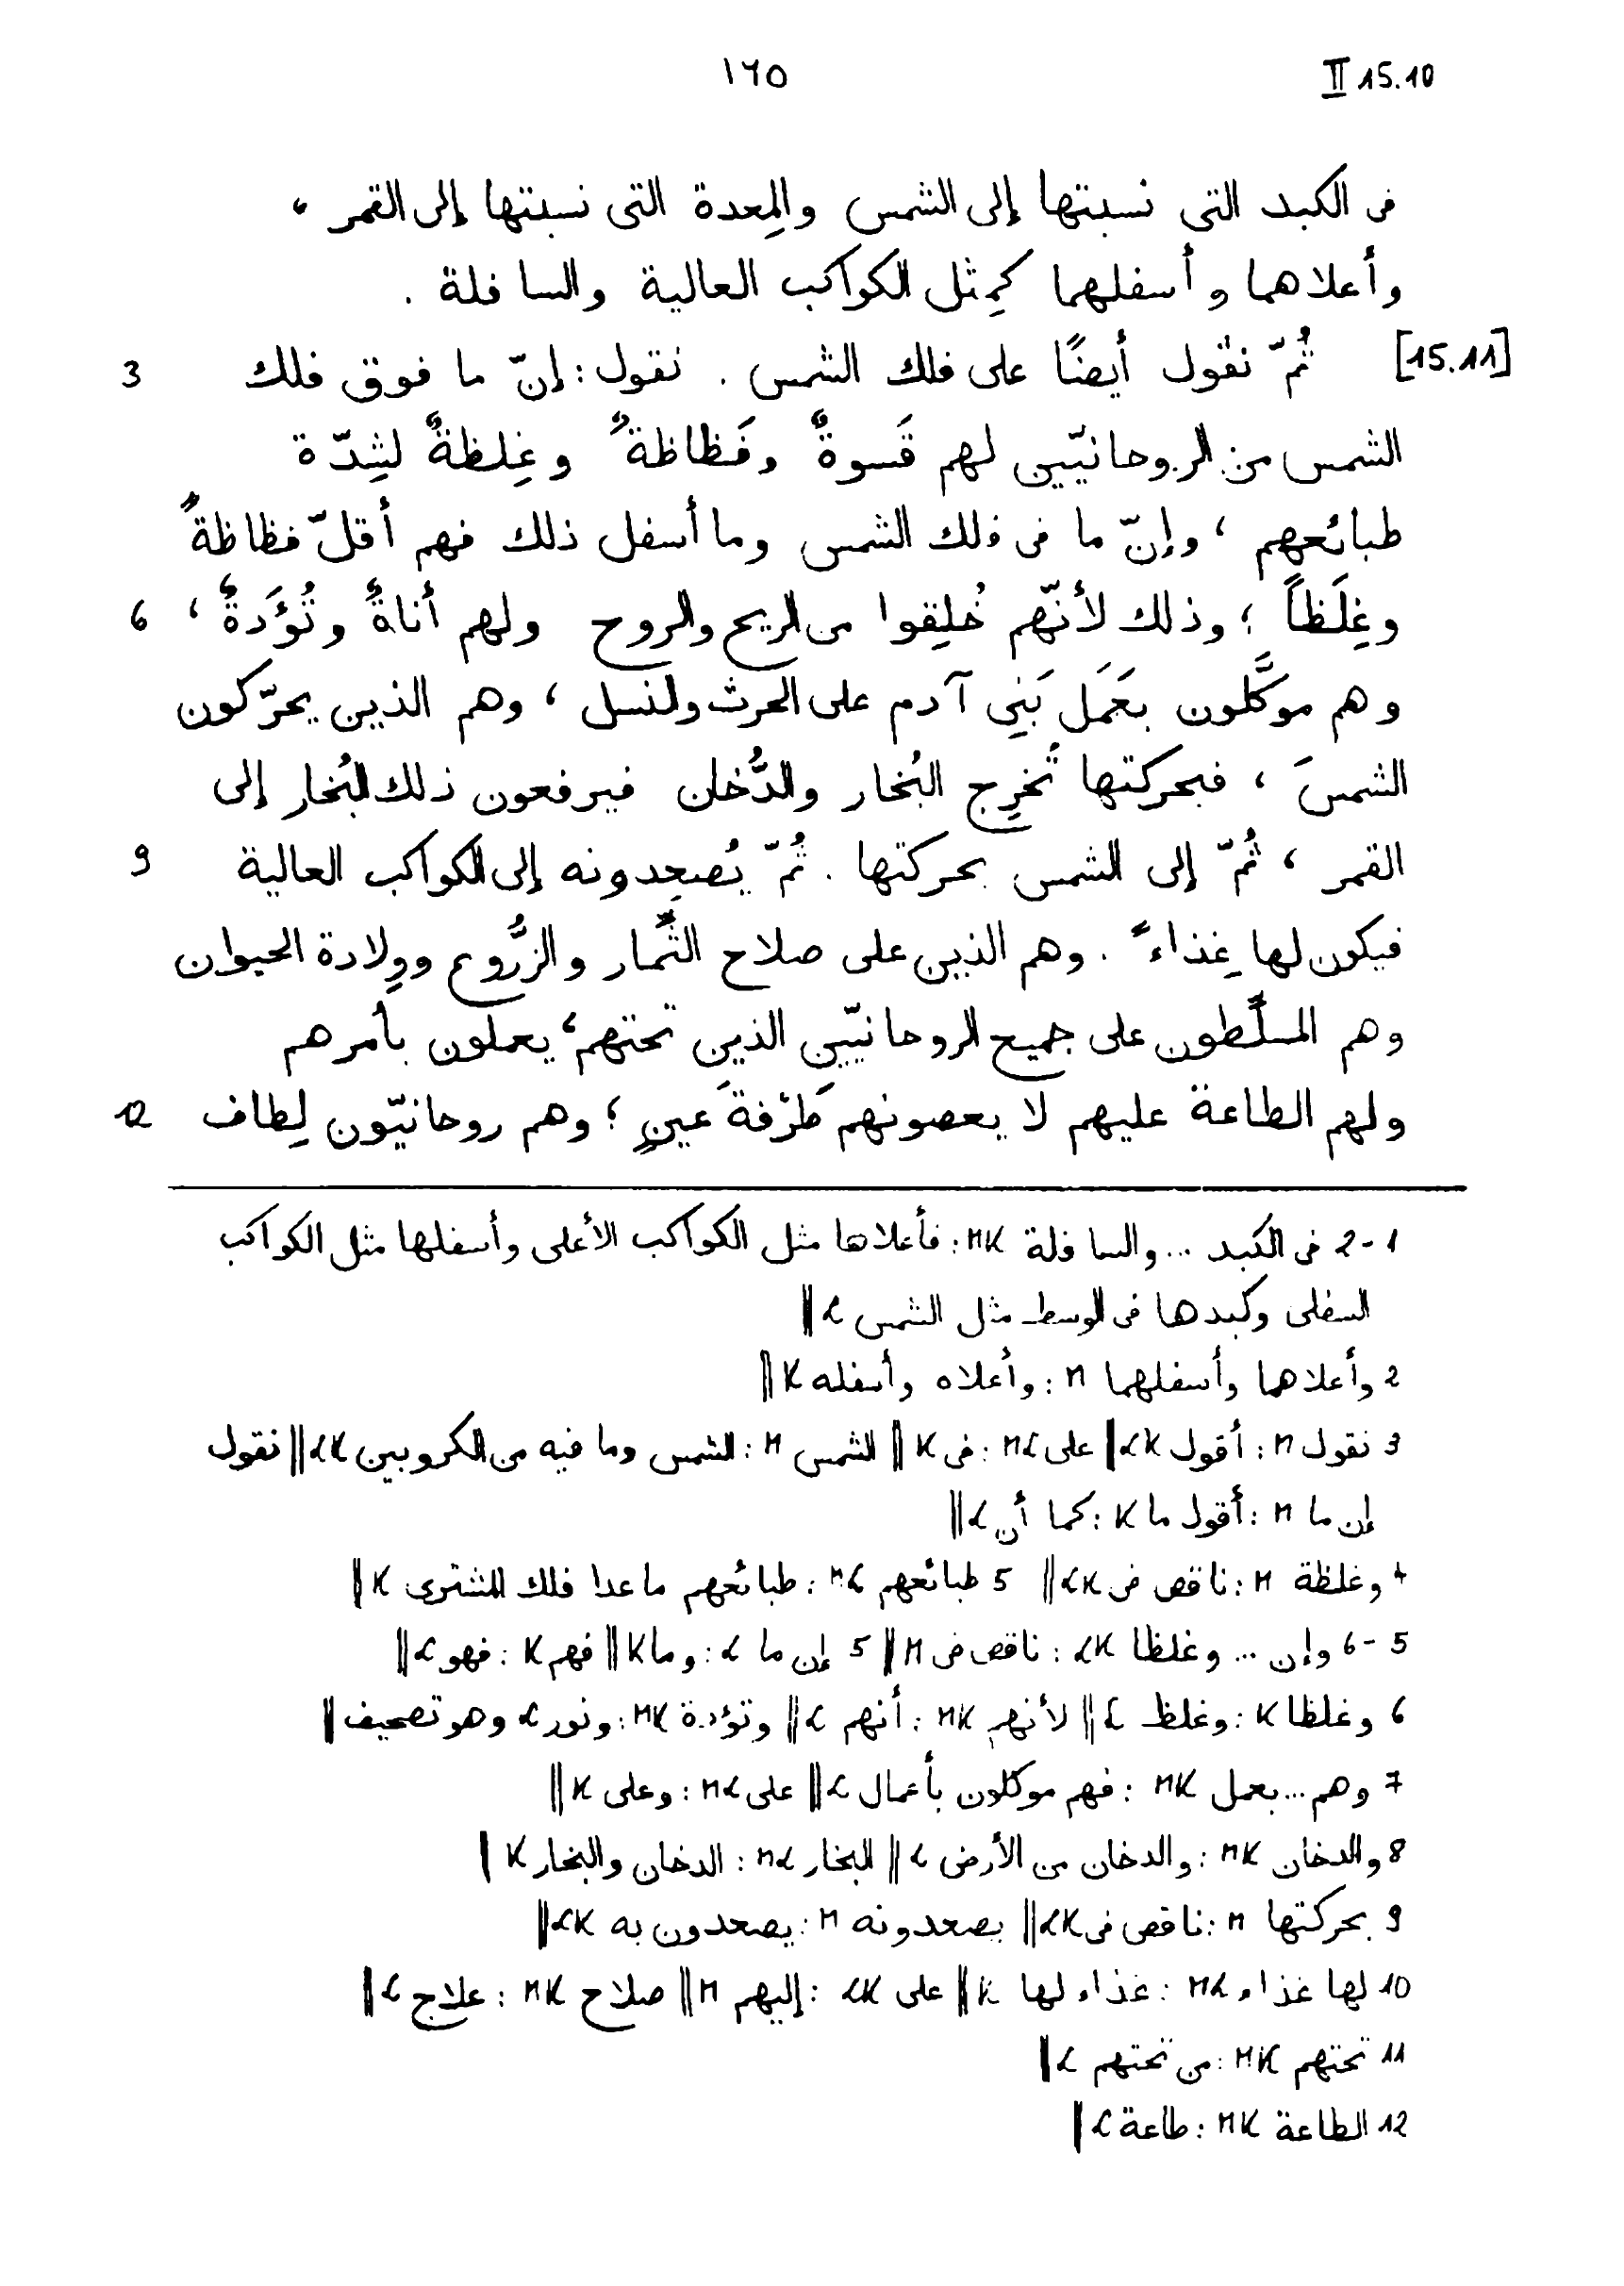 ١٦٥ II 15.10
فى الكبد التى نسبتها إلى الشمس والمِعدة التى نسبتها إلى القمر ،
وأعلاهما وأسفلهما كمِثل الكواكب العالية والسافلة .
[15.11] ثُمّ نقول أيضًا على فلك الشمس . نقول : إنّ ما فوق فلك 3
الشمس من الروحانيّين لهم قَسوةٌ وفَظاظةٌ وغِلظةٌ لشِدّة
طبائعهم ، وإنّ ما فى فلك الشمس وما أسفل ذلك فهم أقلّ فظاظةً
وغِلَظاً ؛ وذلك لأنّهم خُلِقوا من الريح والروح ولهم أناةٌ وتُؤَدةٌ ، 6
وهم موكَّلون بعَمَل بَنِى آدم على الحرث والنسل ، وهم الذين يحرّكون
الشمسَ ، فبحركتها تُخرِج البُخار والدُّخان فيرفعون ذلك البُخار إلى
القمر ، ثُمّ إلى الشمس بحركتها . ثُمّ يُصعِدونه إلى الكواكب العالية 9
فيكون لها غِذاءً . وهم الذين على صلاح الثِّمار والزُّروع ووِلادة الحيوان
وهم المسلَّطون على جميع الروحانيّين الذين تحتهم ، يعملون بأمرهم
ولهم الطاعة عليهم لا يعصونهم طَرْفةَ عينٍ ؛ وهم روحانيّون لِطاف 12
1-2 فى الكبد ... والسافلة MK : فأعلاها مثل الكواكب الأعلى وأسفلها مثل الكواكب
السفلى وكبدها فى الوسط مثل الشمس L ||
2 وأعلاهما وأسفلهما M : وأعلاه وأسفله K ||
3 نقول M : أقول LK || على ML : فى K || الشمس M : الشمس وما فيه من الكروبين LK || نقول
إن ما M : أقول ما K : كما أن L ||
4 وغلظة M : ناقص فى LK || 5 طبائعهم ML : طبائعهم ما عدا فلك المشترى K ||
5-6 وإن ... وغلظا LK : ناقص فى M || 5 إن ما L : وما K || فهم K : فهو L ||
6 وغلظا K : وغلظ L || لأنهم MK : أنهم L || وتؤدة MK : ونور L وهو تصحيف ||
7 وهم ... بعمل MK : فهم موكلون بأعمال L || على ML : وعلى K ||
8 والدخان MK : والدخان من الأرض L || البخار ML : الدخان والبخار K ||
9 بحركتها M : ناقص فى LK || يصعدونه M : يصعدون به LK ||
10 لها غذاء ML : غذاء لها K || على LK : إليهم M || صلاح MK : علاج L ||
11 تحتهم MK : من تحتهم L ||
12 الطاعة MK : طاعة L ||